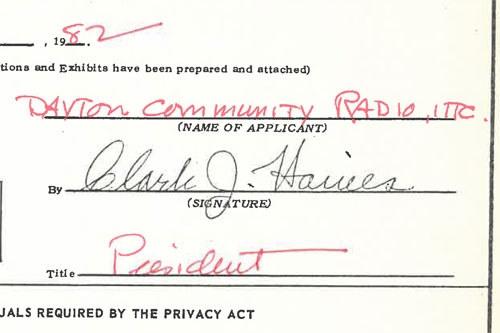 , 1982.
tions and Exhibits have been prepared and attached)
DAYTON COMMUNITY RADIO, INC.
(NAME OF APPLICANT)
By Clark J. Haines
(SIGNATURE)
Title President
UALS REQUIRED BY THE PRIVACY ACT